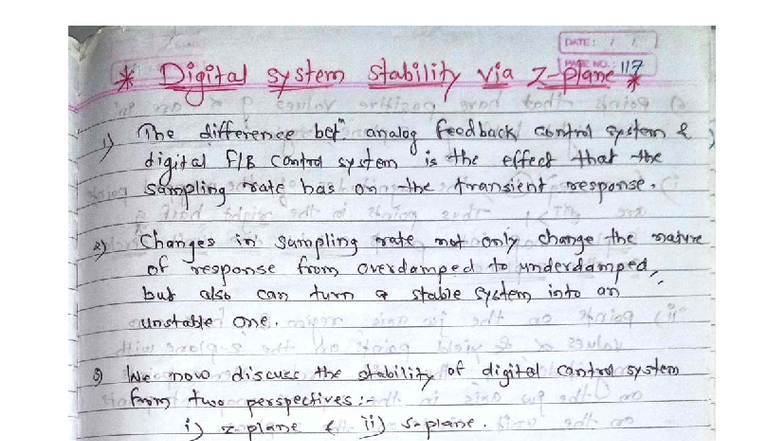 DATE: / /
PAGE NO.: 117
* Digital system stability via Z-plane *
1) The difference betn analog feedback control system &
digital F/B control system is the effect that the
sampling rate has on the transient response.
2) Changes in sampling rate not only change the nature
of response from overdamped to underdamped,
but also can turn a stable system into an
unstable one.
3) We now discuss the stability of digital control system
from two perspectives:-
i) z-plane & ii) s-plane.